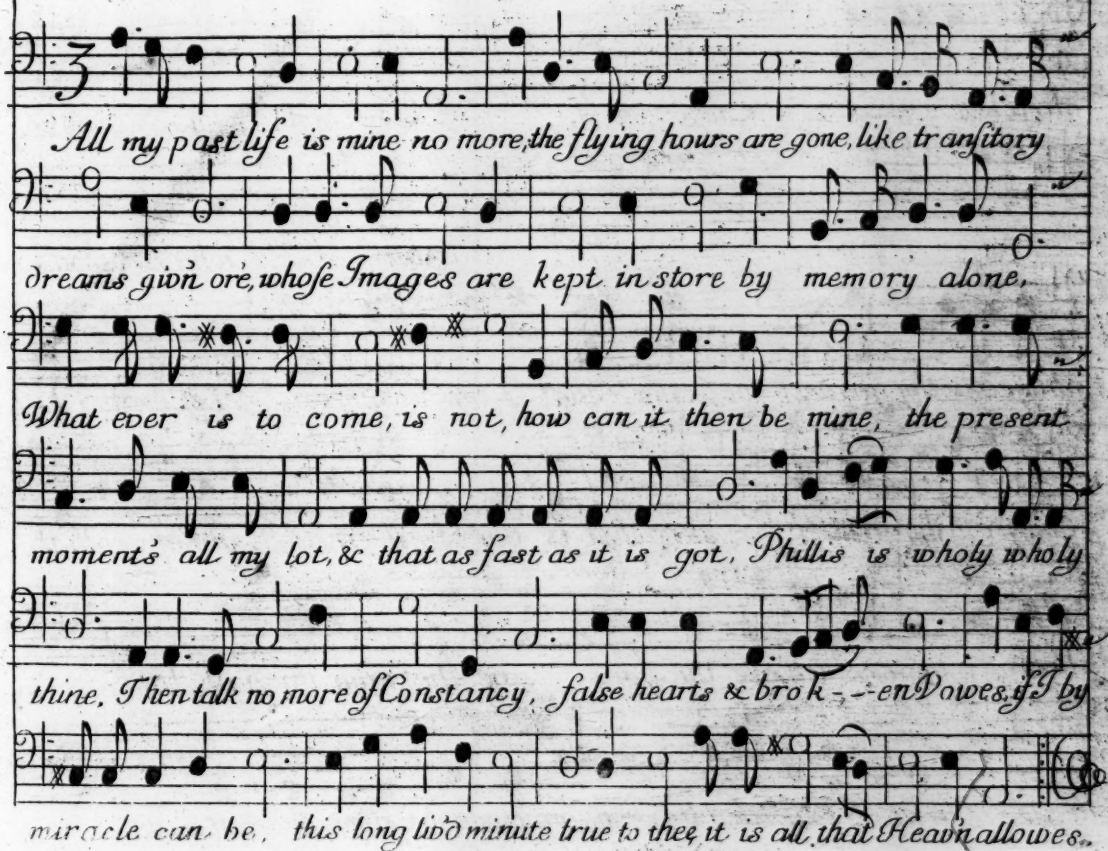 3
All my past life is mine no more, the flying hours are gone, like tranſitory
dreams giv'n ore, whoſe Images are kept in store by memory alone,
What ever is to come, is not, how can it then be mine, the present
moment's all my lot, & that as fast as it is got, Phillis is wholy wholy
thine, Then talk no more of Constancy, false hearts & brok--en Vowes, if I by
miracle can be, this long liv'd minute true to thee, it is all that Heav'n allowes.